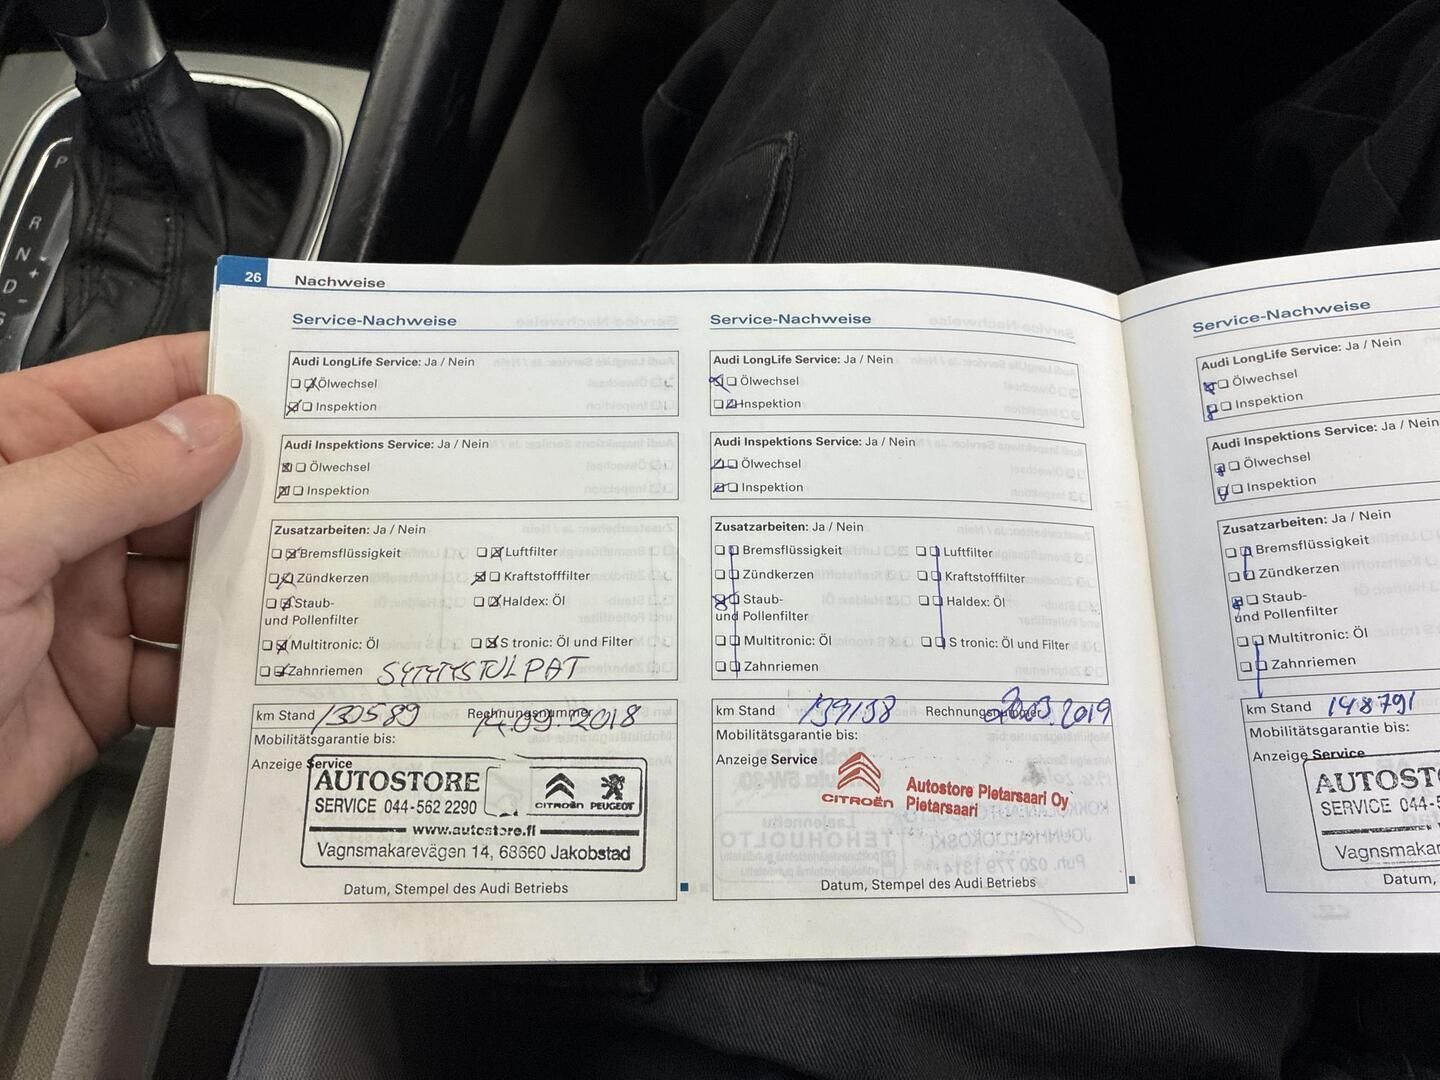 P
R
N
+
D
-
S
26 Nachweise
Service-Nachweise
Audi LongLife Service: Ja / Nein
Ölwechsel
Inspektion
Audi Inspektions Service: Ja / Nein
Ölwechsel
Inspektion
Zusatzarbeiten: Ja / Nein
Bremsflüssigkeit Luftfilter
Zündkerzen Kraftstofffilter
Staub- Haldex: Öl
und Pollenfilter
Multitronic: Öl S tronic: Öl und Filter
Zahnriemen
km Stand 130589 Rechnungsnummer 14.09.2018
Mobilitätsgarantie bis:
Anzeige Service
AUTOSTORE
SERVICE 044-562 2290
CITROËN PEUGEOT
www.autostore.fi
Vagnsmakarevägen 14, 68660 Jakobstad
Datum, Stempel des Audi Betriebs
Service-Nachweise
Audi LongLife Service: Ja / Nein
Ölwechsel
Inspektion
Audi Inspektions Service: Ja / Nein
Ölwechsel
Inspektion
Zusatzarbeiten: Ja / Nein
Bremsflüssigkeit Luftfilter
Zündkerzen Kraftstofffilter
Staub- Haldex: Öl
und Pollenfilter
Multitronic: Öl S tronic: Öl und Filter
Zahnriemen
km Stand 139138 Rechnungsnummer
Mobilitätsgarantie bis:
Anzeige Service
CITROËN
Autostore Pietarsaari Oy
Pietarsaari
Datum, Stempel des Audi Betriebs
Service-Nachweise
Audi LongLife Service: Ja / Nein
Ölwechsel
Inspektion
Audi Inspektions Service: Ja / Nein
Ölwechsel
Inspektion
Zusatzarbeiten: Ja / Nein
Bremsflüssigkeit
Zündkerzen
Staub-
und Pollenfilter
Multitronic: Öl
Zahnriemen
km Stand 148791
Mobilitätsgarantie bis:
Anzeige Service
AUTOST
SERVICE 044-5
Vagnsmakar
Datum,